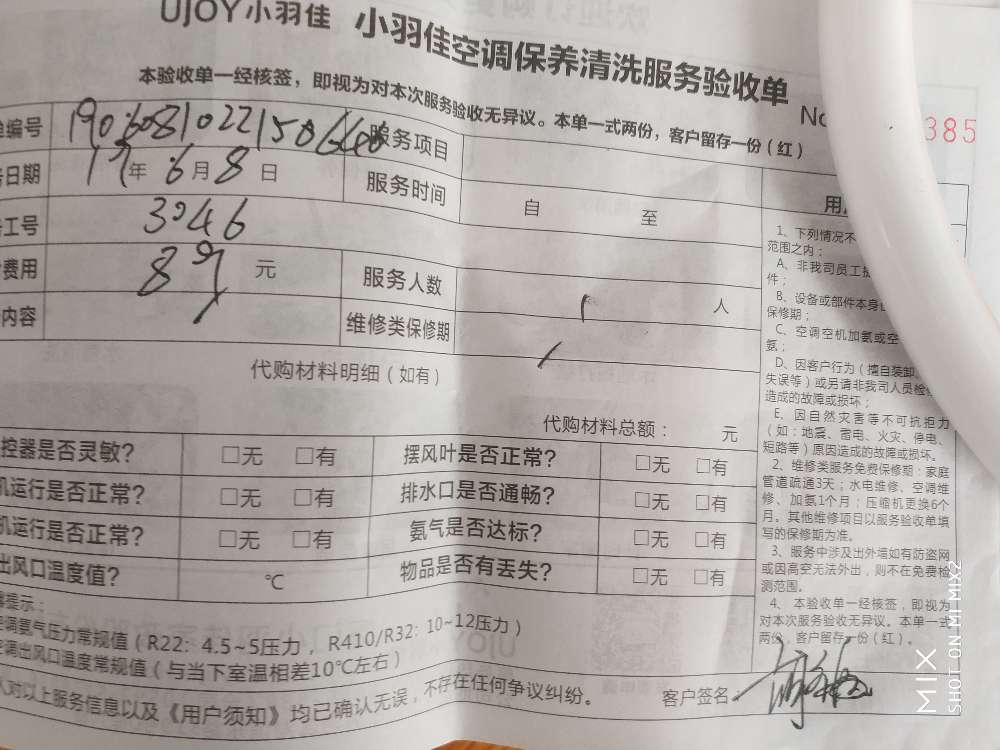 UJOY小羽佳 小羽佳空调保养清洗服务验收单
本验收单一经核签，即视为对本次服务验收无异议。本单一式两份，客户留存一份（红）
No 385
编号 190608102215066 服务项目
日期 19年6月8日 服务时间 自 至
工号 3046
费用 89元 服务人数 1 人
内容 维修类保修期
代购材料明细（如有）
代购材料总额： 元
控器是否灵敏？ □无 □有 摆风叶是否正常？ □无 □有
机运行是否正常？ □无 □有 排水口是否通畅？ □无 □有
机运行是否正常？ □无 □有 氨气是否达标？ □无 □有
出风口温度值？ ℃ 物品是否有丢失？ □无 □有
提示：
调氨气压力常规值（R22：4.5~5压力，R410/R32：10~12压力）
调出风口温度常规值（与当下室温相差10℃左右）
人对以上服务信息以及《用户须知》均已确认无误，不存在任何争议纠纷。
客户签名：
用
1、下列情况不
范围之内：
A、非我司员工
件；
B、设备或部件本身
保修期；
C、空调空机加氨或空
氨；
D、因客户行为（擅自装卸、
失误等）或另请非我司人员检
造成的故障或损坏；
E、因自然灾害等不可抗拒力
（如：地震、雷电、火灾、停电、
短路等）原因造成的故障或损坏。
2、维修类服务免费保修期：家庭
管道疏通3天；水电维修、空调维
修、加氨1个月；压缩机更换6个
月。其他维修项目以服务验收单填
写的保修期为准。
3、服务中涉及出外墙如有防盗网
或因高空无法外出，则不在免费检
测范围。
4、本验收单一经核签，即视为
对本次服务验收无异议。本单一式
两份，客户留存一份（红）。
MIX
SHOT ON MI MIX2